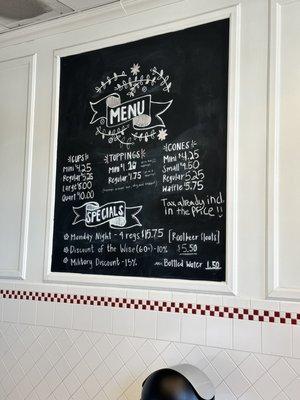 MENU
CUPS
Mini $4.25
Regular 5.25
Large $8.00
Quart $10.00
TOPPINGS
Mini $1.20
Regular $1.75
CONES
Mini $4.25
Small $4.50
Regular 5.25
Waffle $5.75
Tax already incl.
in the PRICE !!
SPECIALS
Monday Night - 4 regs $15.75
Discount of the Wise (60+) - 10%
Military Discount - 15%
Rootbeer Floats
$5.50
Bottled Water 1.50